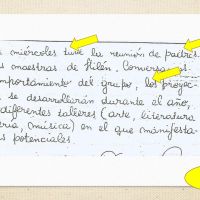 miércoles tuve la reunión de padres.
as maestras de Hilén. Conversamos
mportamiento del grupo, los proyec-
se desarrollarán durante el año,
diferentes talleres (arte, literatura
ería, música) en el que manifesta-
s potenciales.